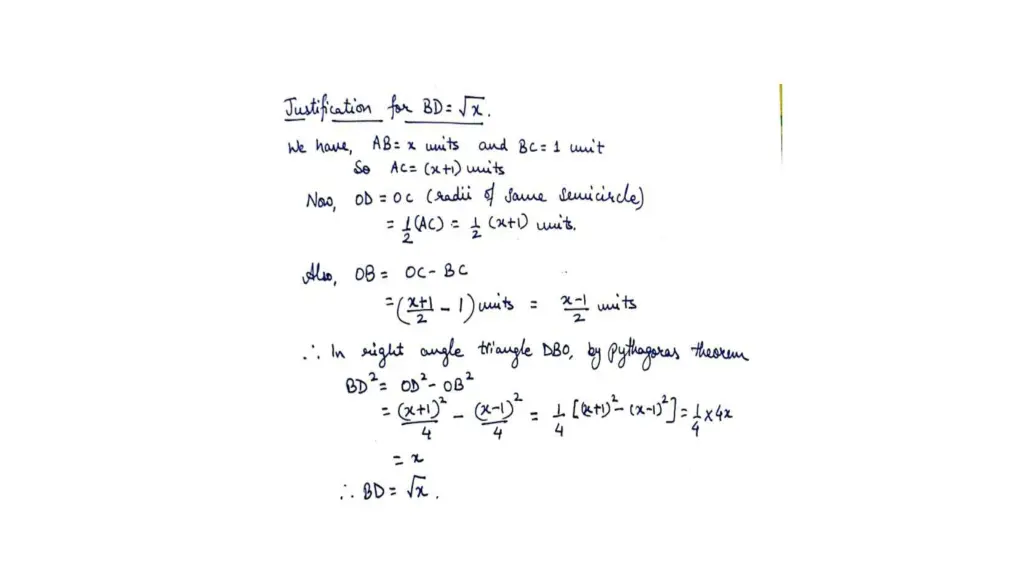 Justification for BD = √x.
We have, AB = x units and BC = 1 unit
So AC = (x+1) units
Now, OD = OC (radii of same semicircle)
= 1/2 (AC) = 1/2 (x+1) units.
Also, OB = OC - BC
= (x+1/2 - 1) units = x-1/2 units
∴ In right angle triangle DBO, by Pythagoras theorem
BD² = OD² - OB²
= (x+1)²/4 - (x-1)²/4 = 1/4 [(x+1)² - (x-1)²] = 1/4 × 4x
= x
∴ BD = √x.